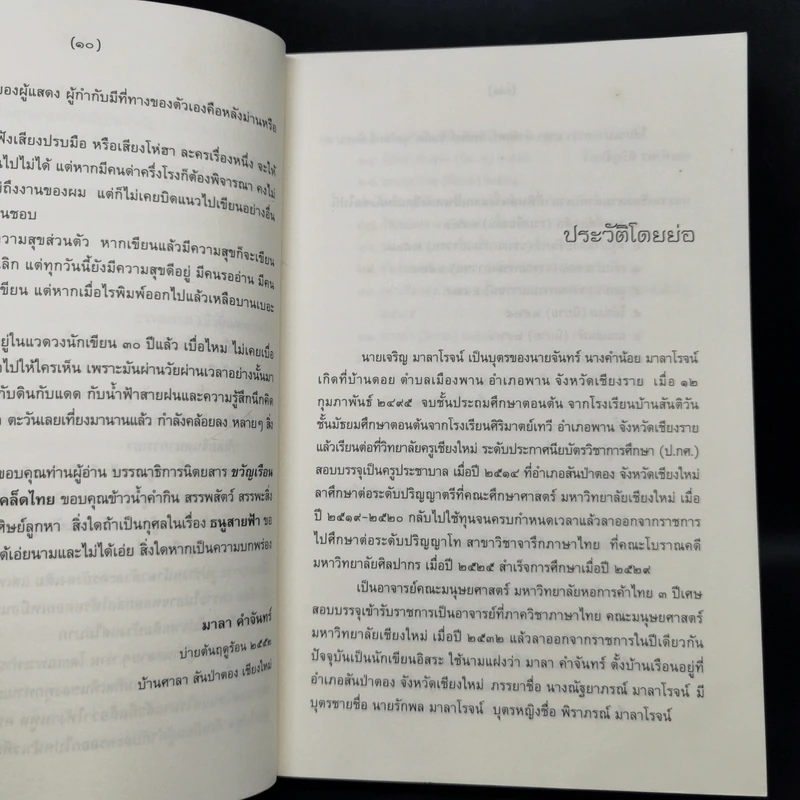 (๑๐)
ของผู้แสดง ผู้กำกับมีที่ทางของตัวเองคือหลังม่านหรือ
ฟังเสียงปรบมือ หรือเสียงโห่ฮา ละครเรื่องหนึ่ง จะให้
ไปไม่ได้ แต่หากมีคนด่าครึ่งโรงก็ต้องพิจารณา คงไม่
ถึงงานของผม แต่ก็ไม่เคยบิดแนวไปเขียนอย่างอื่น
ชอบ
ความสุขส่วนตัว หากเขียนแล้วมีความสุขก็จะเขียน
เลิก แต่ทุกวันนี้ยังมีความสุขดีอยู่ มีคนรออ่าน มีคน
เขียน แต่หากเมื่อไรพิมพ์ออกไปแล้วเหลือบานเบอะ
อยู่ในแวดวงนักเขียน ๓๐ ปีแล้ว เบื่อไหม ไม่เคยเบื่อ
ไปให้ใครเห็น เพราะมันผ่านวัยผ่านเวลาอย่างนั้นมา
กับดินกับแดด กับน้ำฟ้าสายฝนและความรู้สึกนึกคิด
ตะวันเลยเที่ยงมานานแล้ว กำลังคล้อยลง หลายๆ สิ่ง
ขอบคุณท่านผู้อ่าน บรรณาธิการนิตยสาร ขวัญเรือน
เคล็ดไทย ขอบคุณข้าวน้ำคำกิน สรรพสัตว์ สรรพะสิ่ง
ศิษย์ลูกหา สิ่งใดถ้าเป็นกุศลในเรื่อง ธนูสายฟ้า ขอ
ได้เอ่ยนามและไม่ได้เอ่ย สิ่งใดหากเป็นความบกพร่อง
มาลา คำจันทร์
บ่ายต้นฤดูร้อน ๒๕๕๒
บ้านศาลา สันป่าตอง เชียงใหม่
ประวัติโดยย่อ
นายเจริญ มาลาโรจน์ เป็นบุตรของนายจันทร์ นางคำน้อย มาลาโรจน์
เกิดที่บ้านดอย ตำบลเมืองพาน อำเภอพาน จังหวัดเชียงราย เมื่อ ๑๒
กุมภาพันธ์ ๒๔๙๕ จบชั้นประถมศึกษาตอนต้น จากโรงเรียนบ้านสันติวัน
ชั้นมัธยมศึกษาตอนต้นจากโรงเรียนศิริมาตย์เทวี อำเภอพาน จังหวัดเชียงราย
แล้วเรียนต่อที่วิทยาลัยครูเชียงใหม่ ระดับประกาศนียบัตรวิชาการศึกษา (ป.กศ.)
สอบบรรจุเป็นครูประชาบาล เมื่อปี ๒๕๑๔ ที่อำเภอสันป่าตอง จังหวัดเชียงใหม่
ลาศึกษาต่อระดับปริญญาตรีที่คณะศึกษาศาสตร์ มหาวิทยาลัยเชียงใหม่ เมื่อ
ปี ๒๕๑๙-๒๕๒๐ กลับไปใช้ทุนจนครบกำหนดเวลาแล้วลาออกจากราชการ
ไปศึกษาต่อระดับปริญญาโท สาขาวิชาจารึกภาษาไทย ที่คณะโบราณคดี
มหาวิทยาลัยศิลปากร เมื่อปี ๒๕๒๕ สำเร็จการศึกษาเมื่อปี ๒๕๒๙
เป็นอาจารย์คณะมนุษยศาสตร์ มหาวิทยาลัยหอการค้าไทย ๓ ปีเศษ
สอบบรรจุเข้ารับราชการเป็นอาจารย์ที่ภาควิชาภาษาไทย คณะมนุษยศาสตร์
มหาวิทยาลัยเชียงใหม่ เมื่อปี ๒๕๓๒ แล้วลาออกจากราชการในปีเดียวกัน
ปัจจุบันเป็นนักเขียนอิสระ ใช้นามแฝงว่า มาลา คำจันทร์ ตั้งบ้านเรือนอยู่ที่
อำเภอสันป่าตอง จังหวัดเชียงใหม่ ภรรยาชื่อ นางณัฐยาภรณ์ มาลาโรจน์ มี
บุตรชายชื่อ นายรักพล มาลาโรจน์ บุตรหญิงชื่อ พิราภรณ์ มาลาโรจน์